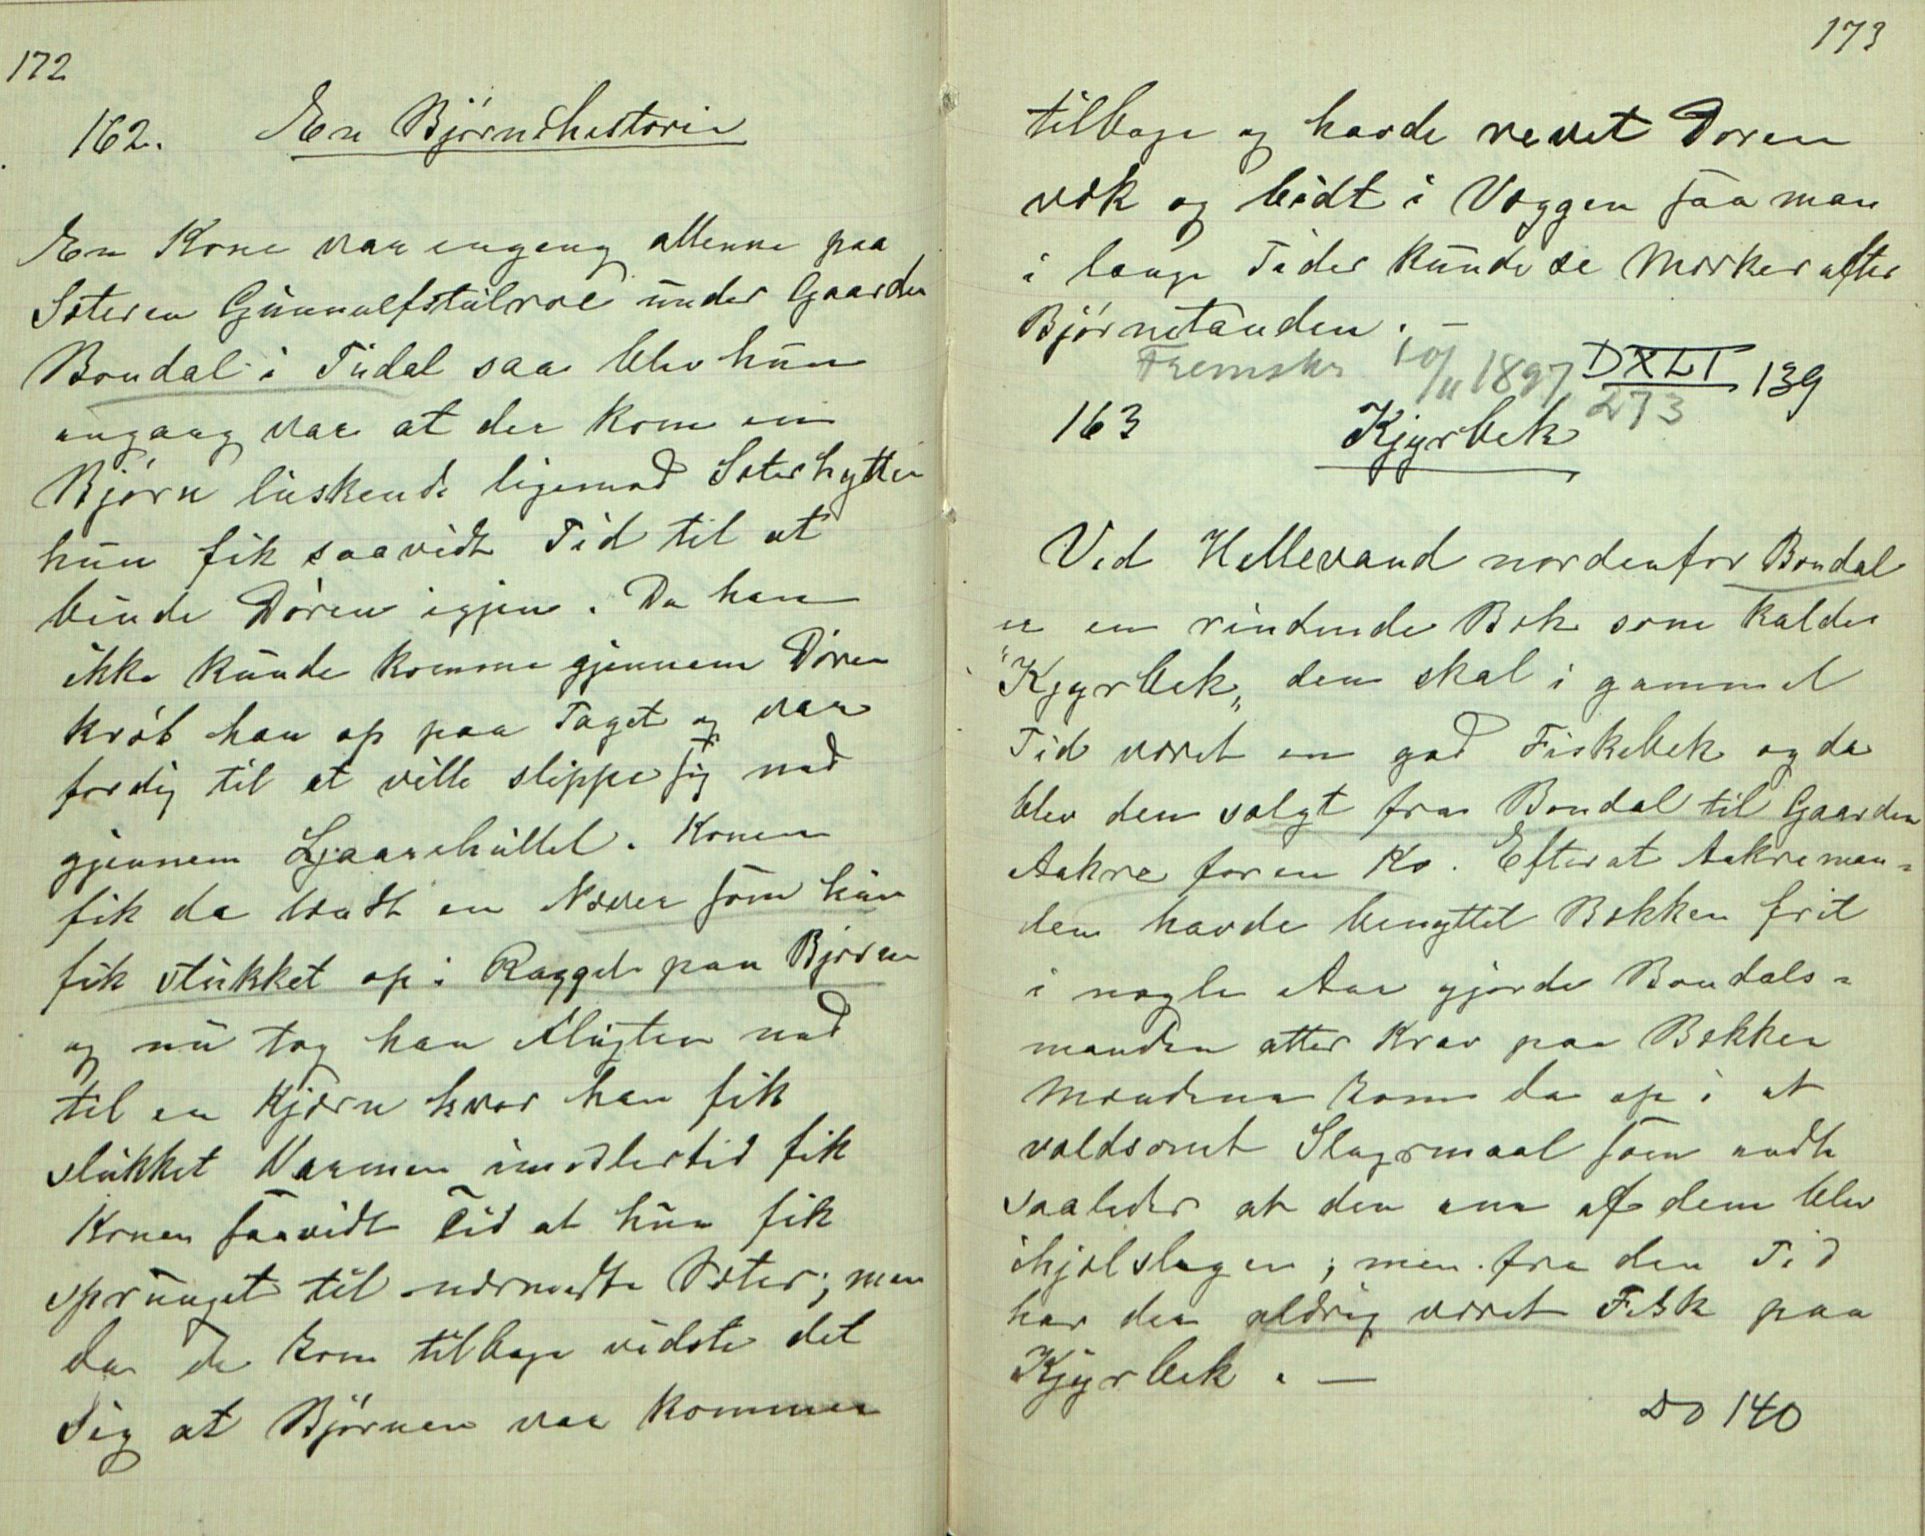 172
162. En Bjørnehistorie
En Kone var engang allenne paa
Sæteren Gunnulfstulroe under Gaarden
Bondal i Tudal saa blev hun
engang var at der kom ein
Bjørn luskende ligemod Sæterhytten
hun fik saavidt Tid til at
binde Døren igjen. Da han
ikke kunde komme gjennem Døren
krøb han op paa Taget og var
færdig til at ville slippe sig ned
gjennem Ljaarehullet. Konen
fik da tændt en Næver som hun
fik stukket op i Ragget paa Bjørnen
og nu tog han Flugten ned
til en Kjærn hvor han fik
slukket Varmen imidlertid fik
Konen saavidt Tid at hun fik
sprunget til nærmeste Sæter; men
da de kom tilbage vidste det
sig at Bjørnen var kommen
173
tilbage og havde revet Døren
væk og bidt i Væggen saa man
i lange Tider kunde se Merker efter
Bjørnetanden. —
Fremskr 10/11 1897 DXLI 139
273
163 Kjyrbek
Ved Hellevand nordenfor Bondal
er en rindende Bæk som kaldes
"Kjyrbek„ den skal i gammel
Tid været en god Fiskebek og da
blev den solgt fra Bondal til Gaarden
Aakre for en Ko. Efterat Aakreman=
den havde benyttet Bækken frit
i nogle Aar gjorde Bondals=
manden atter Krav paa Bækken
Mændene kom da op i et
voldsomt Slagsmaal som endte
saaledes at den ene af dem blev
ihjelslagen; men fra den Tid
har der aldrig været Fisk paa
Kjyrbek. —
Do 140